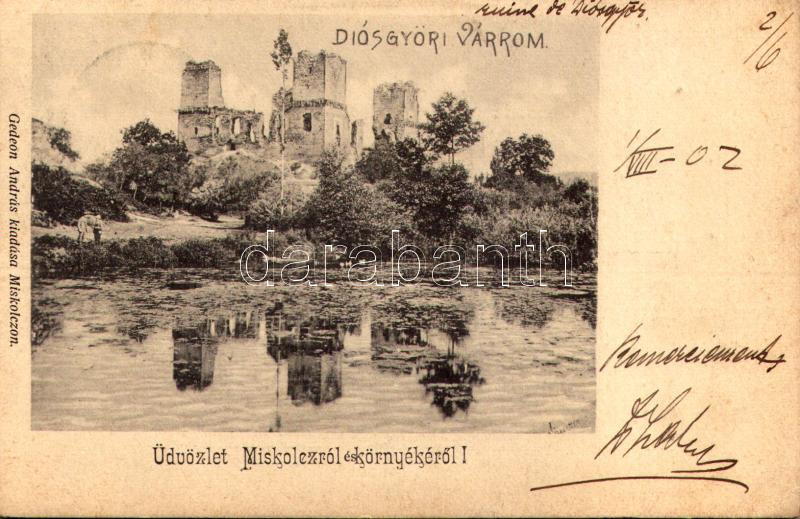 ruine de Diósgyőr.
2/6
DIÓSGYŐRI VÁRROM.
1/VIII - 02
Gedeon András kiadása Miskolczon.
darabanth
Üdvözlet Miskolczról és környékéről !